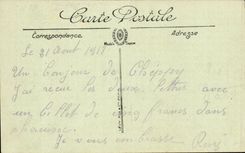 Carte Postale
Correspondance Adresse
Le 21 Août 1918
Un bonjour de
j'ai reçu les deux lettres avec
un Billet de cinq francs dans
chacune.
Je vous embrasse